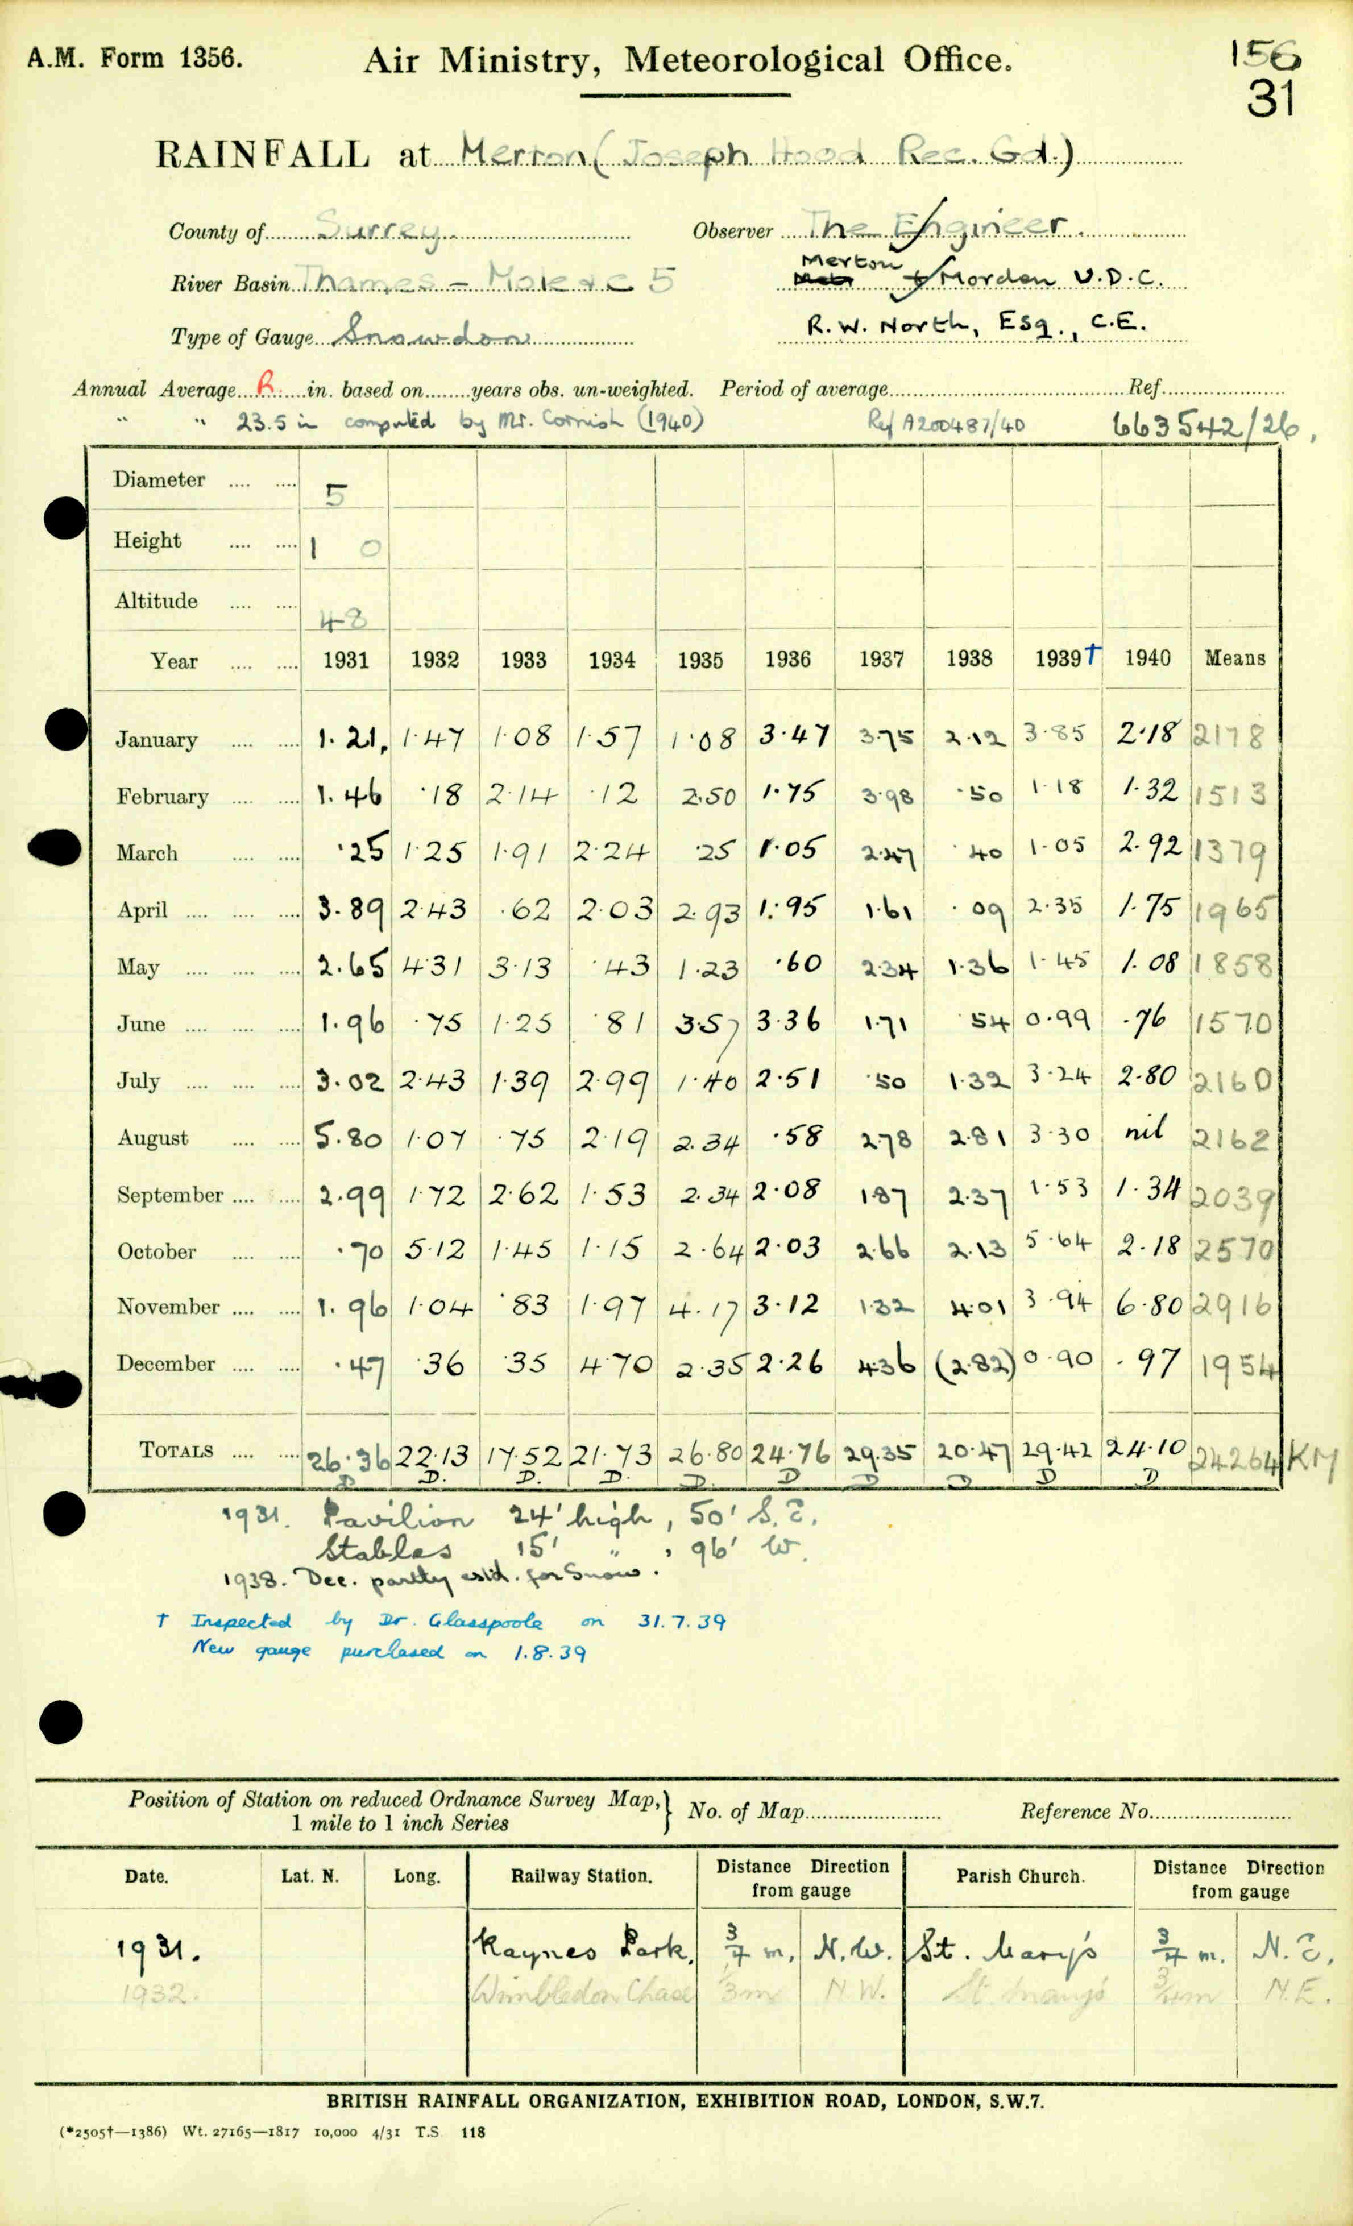 A.M. Form 1356. Air Ministry, Meteorological Office. 156
31
RAINFALL at Merton (Joseph Hood Rec. Gd.)
County of Surrey. Observer The Engineer.
River Basin Thames – Mole &c 5 Merton & Morden U.D.C.
Type of Gauge Snowdon R.W. North, Esq., C.E.
Annual Average R in. based on years obs. un-weighted. Period of average Ref.
" " 23.5 in computed by Mr. Cornish (1940) Ref A200487/40 663542/26.
Diameter 5
Height 1 0
Altitude 48
Year 1931 1932 1933 1934 1935 1936 1937 1938 1939† 1940 Means
January 1.21, 1.47 1.08 1.57 1.08 3.47 3.75 2.12 3.85 2.18 2178
February 1.46 .18 2.14 .12 2.50 1.75 3.98 .50 1.18 1.32 1513
March .25 1.25 1.91 2.24 .25 1.05 2.47 .40 1.05 2.92 1379
April 3.89 2.43 .62 2.03 2.93 1.95 1.61 .09 2.35 1.75 1965
May 2.65 4.31 3.13 .43 1.23 .60 2.34 1.36 1.45 1.08 1858
June 1.96 .75 1.25 .81 3.57 3.36 1.71 .54 0.99 .76 1570
July 3.02 2.43 1.39 2.99 1.40 2.51 .50 1.32 3.24 2.80 2160
August 5.80 1.07 .75 2.19 2.34 .58 2.78 2.81 3.30 nil 2162
September 2.99 1.72 2.62 1.53 2.34 2.08 1.87 2.37 1.53 1.34 2039
October .70 5.12 1.45 1.15 2.64 2.03 2.66 2.13 5.64 2.18 2570
November 1.96 1.04 .83 1.97 4.17 3.12 1.32 4.01 3.94 6.80 2916
December .47 .36 .35 4.70 2.35 2.26 4.36 (2.82) 0.90 .97 1954
TOTALS 26.36 22.13 17.52 21.73 26.80 24.76 29.35 20.47 29.42 24.10 24264 KM
D D. D. D. D. D D D D D
1931. Pavilion 24' high, 50' S.E.
Stables 15' " , 96' W.
1938. Dec. partly estd. for Snow.
† Inspected by Dr. Glasspoole on 31.7.39
New gauge purchased on 1.8.39
Position of Station on reduced Ordnance Survey Map,} No. of Map Reference No.
1 mile to 1 inch Series
Date. Lat. N. Long. Railway Station. Distance Direction from gauge Parish Church. Distance Direction from gauge
1931. Raynes Park. 3/4 m. N.W. St. Mary's 3/4 m. N.E.
1932. Wimbledon Chase 1/3m N.W. St Mary's 3/4m N.E.
BRITISH RAINFALL ORGANIZATION, EXHIBITION ROAD, LONDON, S.W.7.
(*2505†—1386) Wt. 27165—1817 10,000 4/31 T.S 118